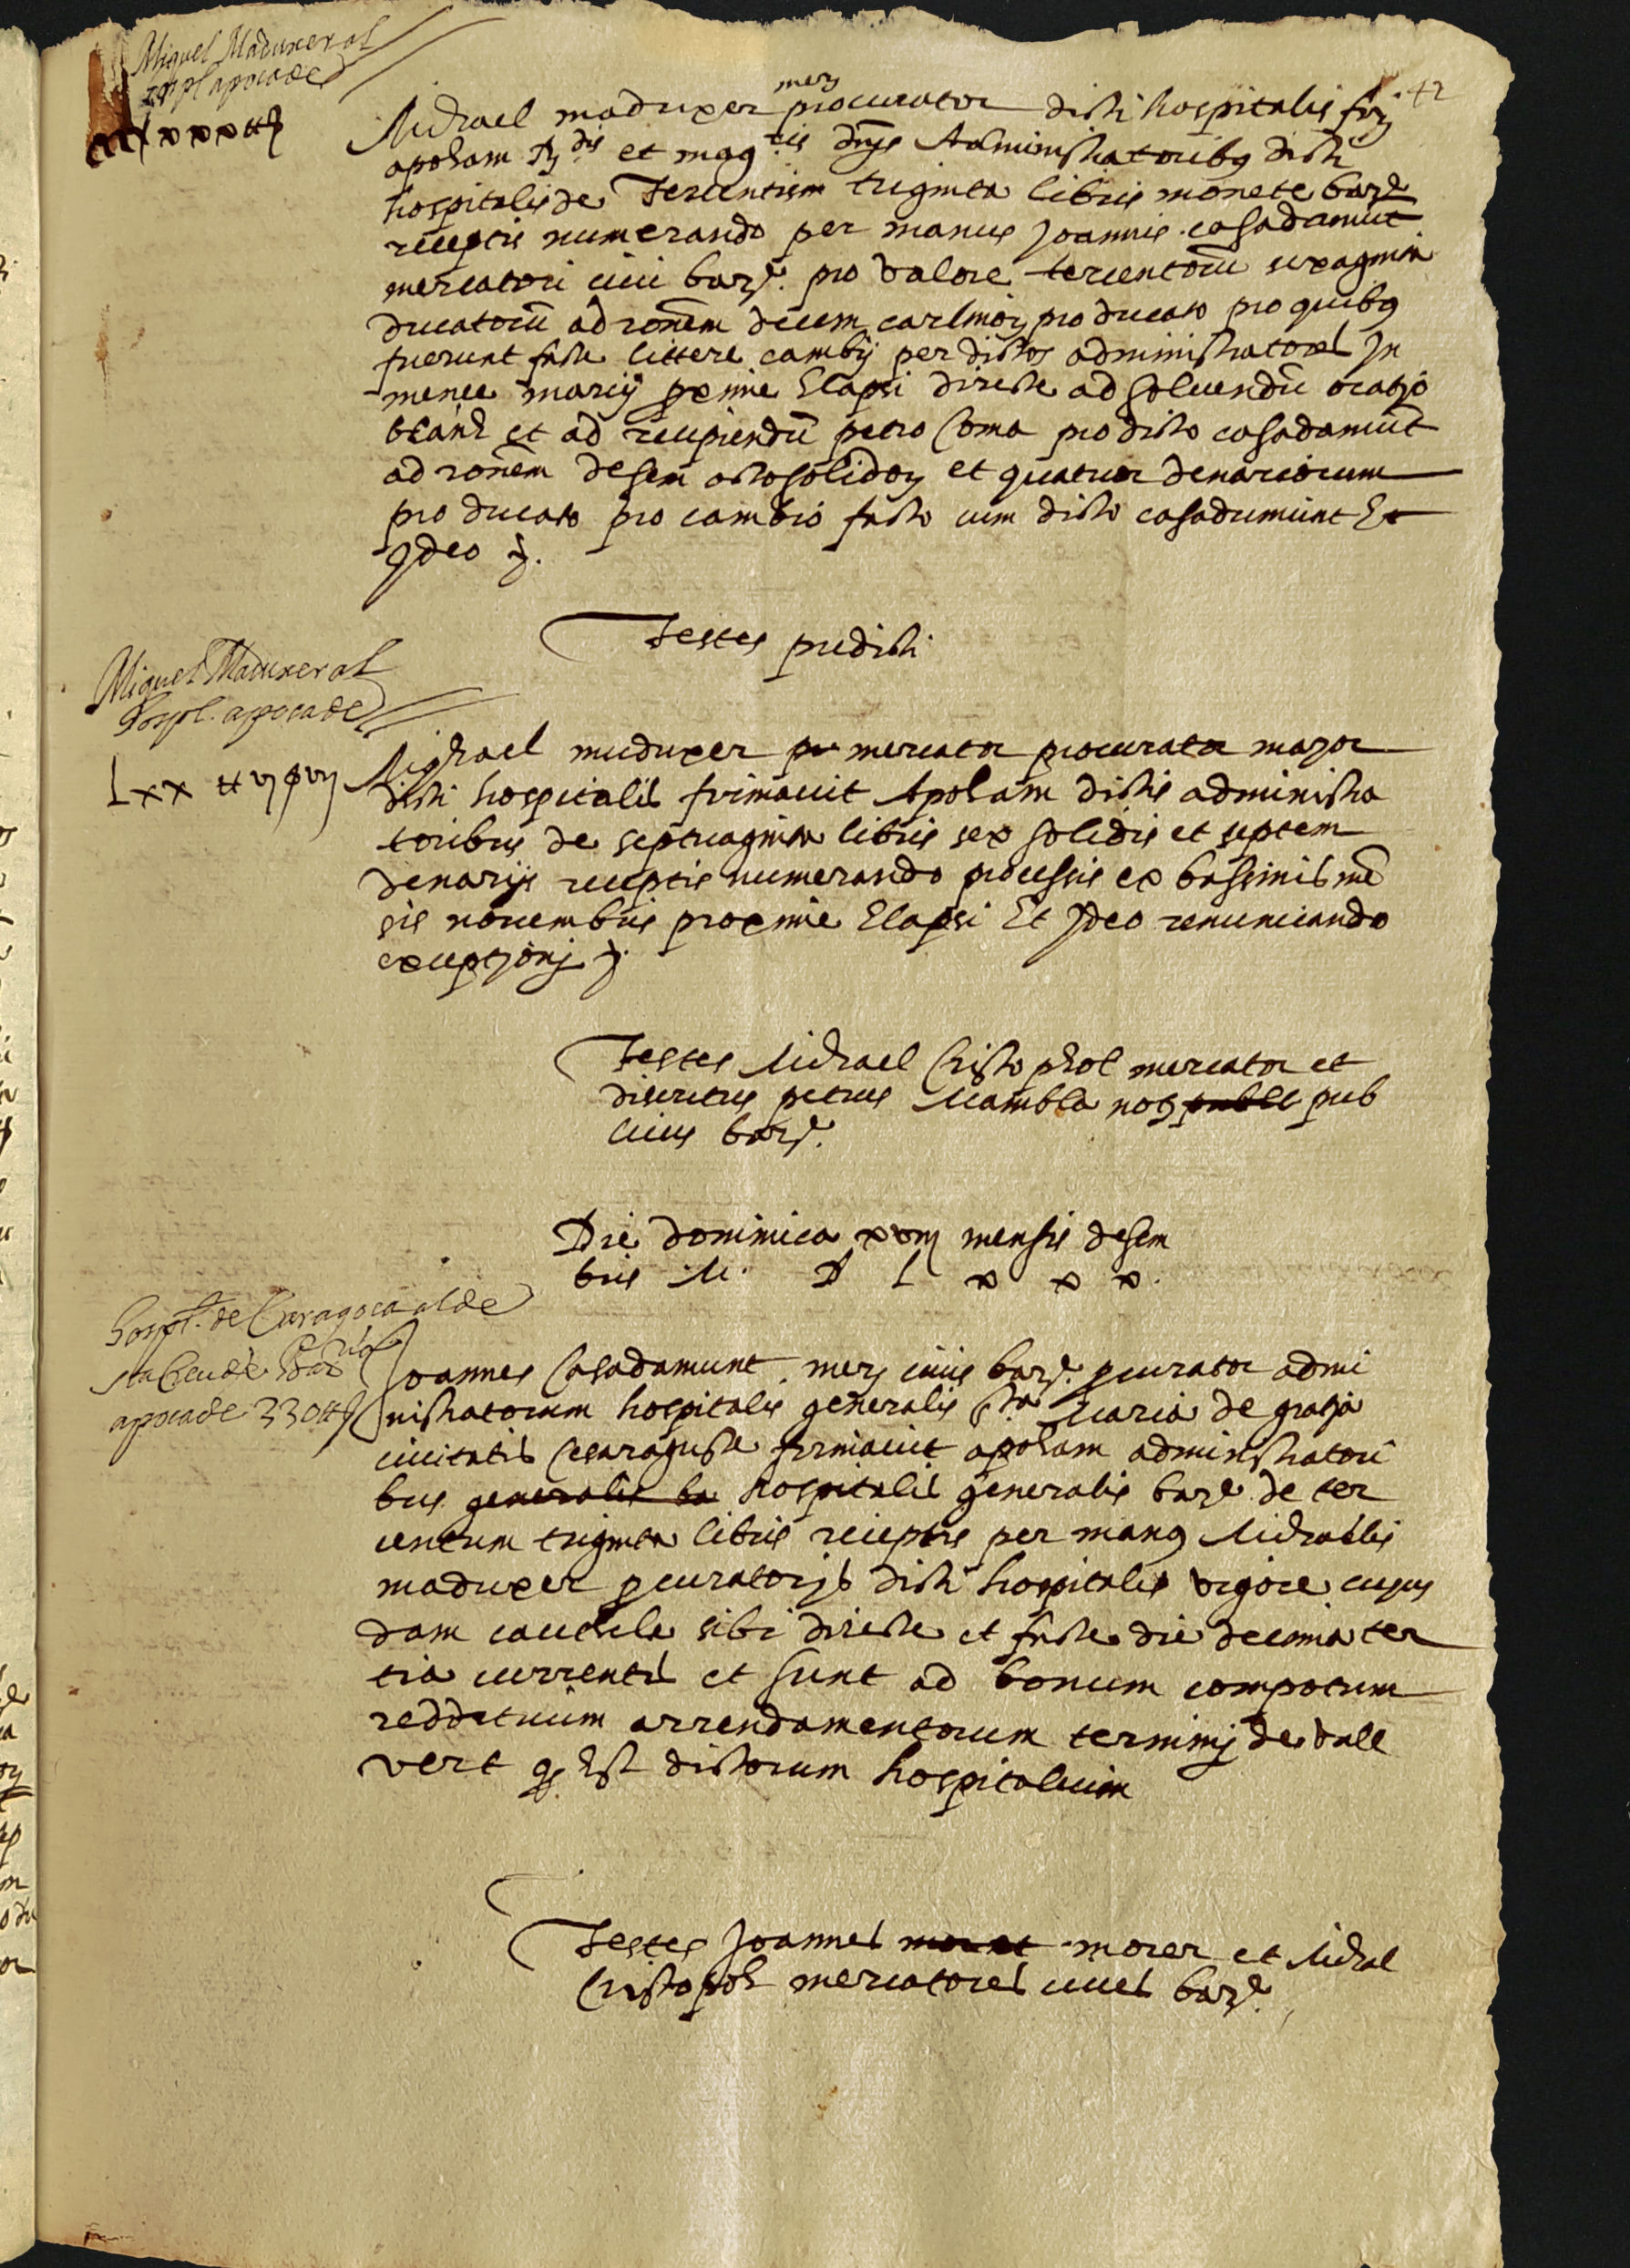 Miguel Maduxer al
hospl apoca de
cccxxx ₶
42
mer
Michael maduxer procurator dicti hospitalis fir
apoham Rdis et magcis dnis Administratoribus dicti
hospitalis de Tercentum triginta libris monete barne
receptis numerando per manus Joannis casadamunt
mercatori civi barne. pro valore tercentorū sexaginta
ducatorū ad ronem decem carlinorum pro ducato pro quibus
fuerunt facte littere cambij per dictos administratores In
mense marcij proxime Elapsi directe ad solvendū
et ad recipiendū petro Coma pro dicto casadamunt
ad ronem desem octo solidorum et quatuor denariorum
pro ducato pro cambio facto cum dicto casadumunt Et
Ideo &.
Testes predicti
Miguel Maduxer al
hospl. apoca de
Lxx ₶ vj ß vij
Michael muduxer pr mercator procurator major
dicti hospitalis firmavit Apoham dictis administra
toribus de septuaginta libris sex solidis et septem
denarijs receptis numerando processis ex bassinis mē
sis novembris proxime Elapsi Et Ideo renunciando
exceptionj &.
Testes Michael Cristophol mercator et
discretus petrus Mambla not publi pub
civis barne.
Die dominica xviij mensis desem
bris M. D L x x x.
Hospl. de Caragoca al de
Sta Creu de Barna
apoca de 330 ₶
Joannes Casadamunt mer civis barne. procurator admi
nistratorum hospitalis generalis Sta Maria de gratia
civitatis Cesarauguste firmavit apoham administratori
bus generalis ba hospitalis generalis barne de ter
centum triginta libris receptis per manus Michaelis
maduxer procuratorjs dicti hospitalis vigore cujus
dam cauthele sibi directe et facte die decima ter
tia currentis et sunt ad bonum compotum
reddituum arrendamentorum terminj de vall
vert q Est dictorum hospitalium
Testes Joannes morat morer et Michael
Cristophol mercatores cives barne.